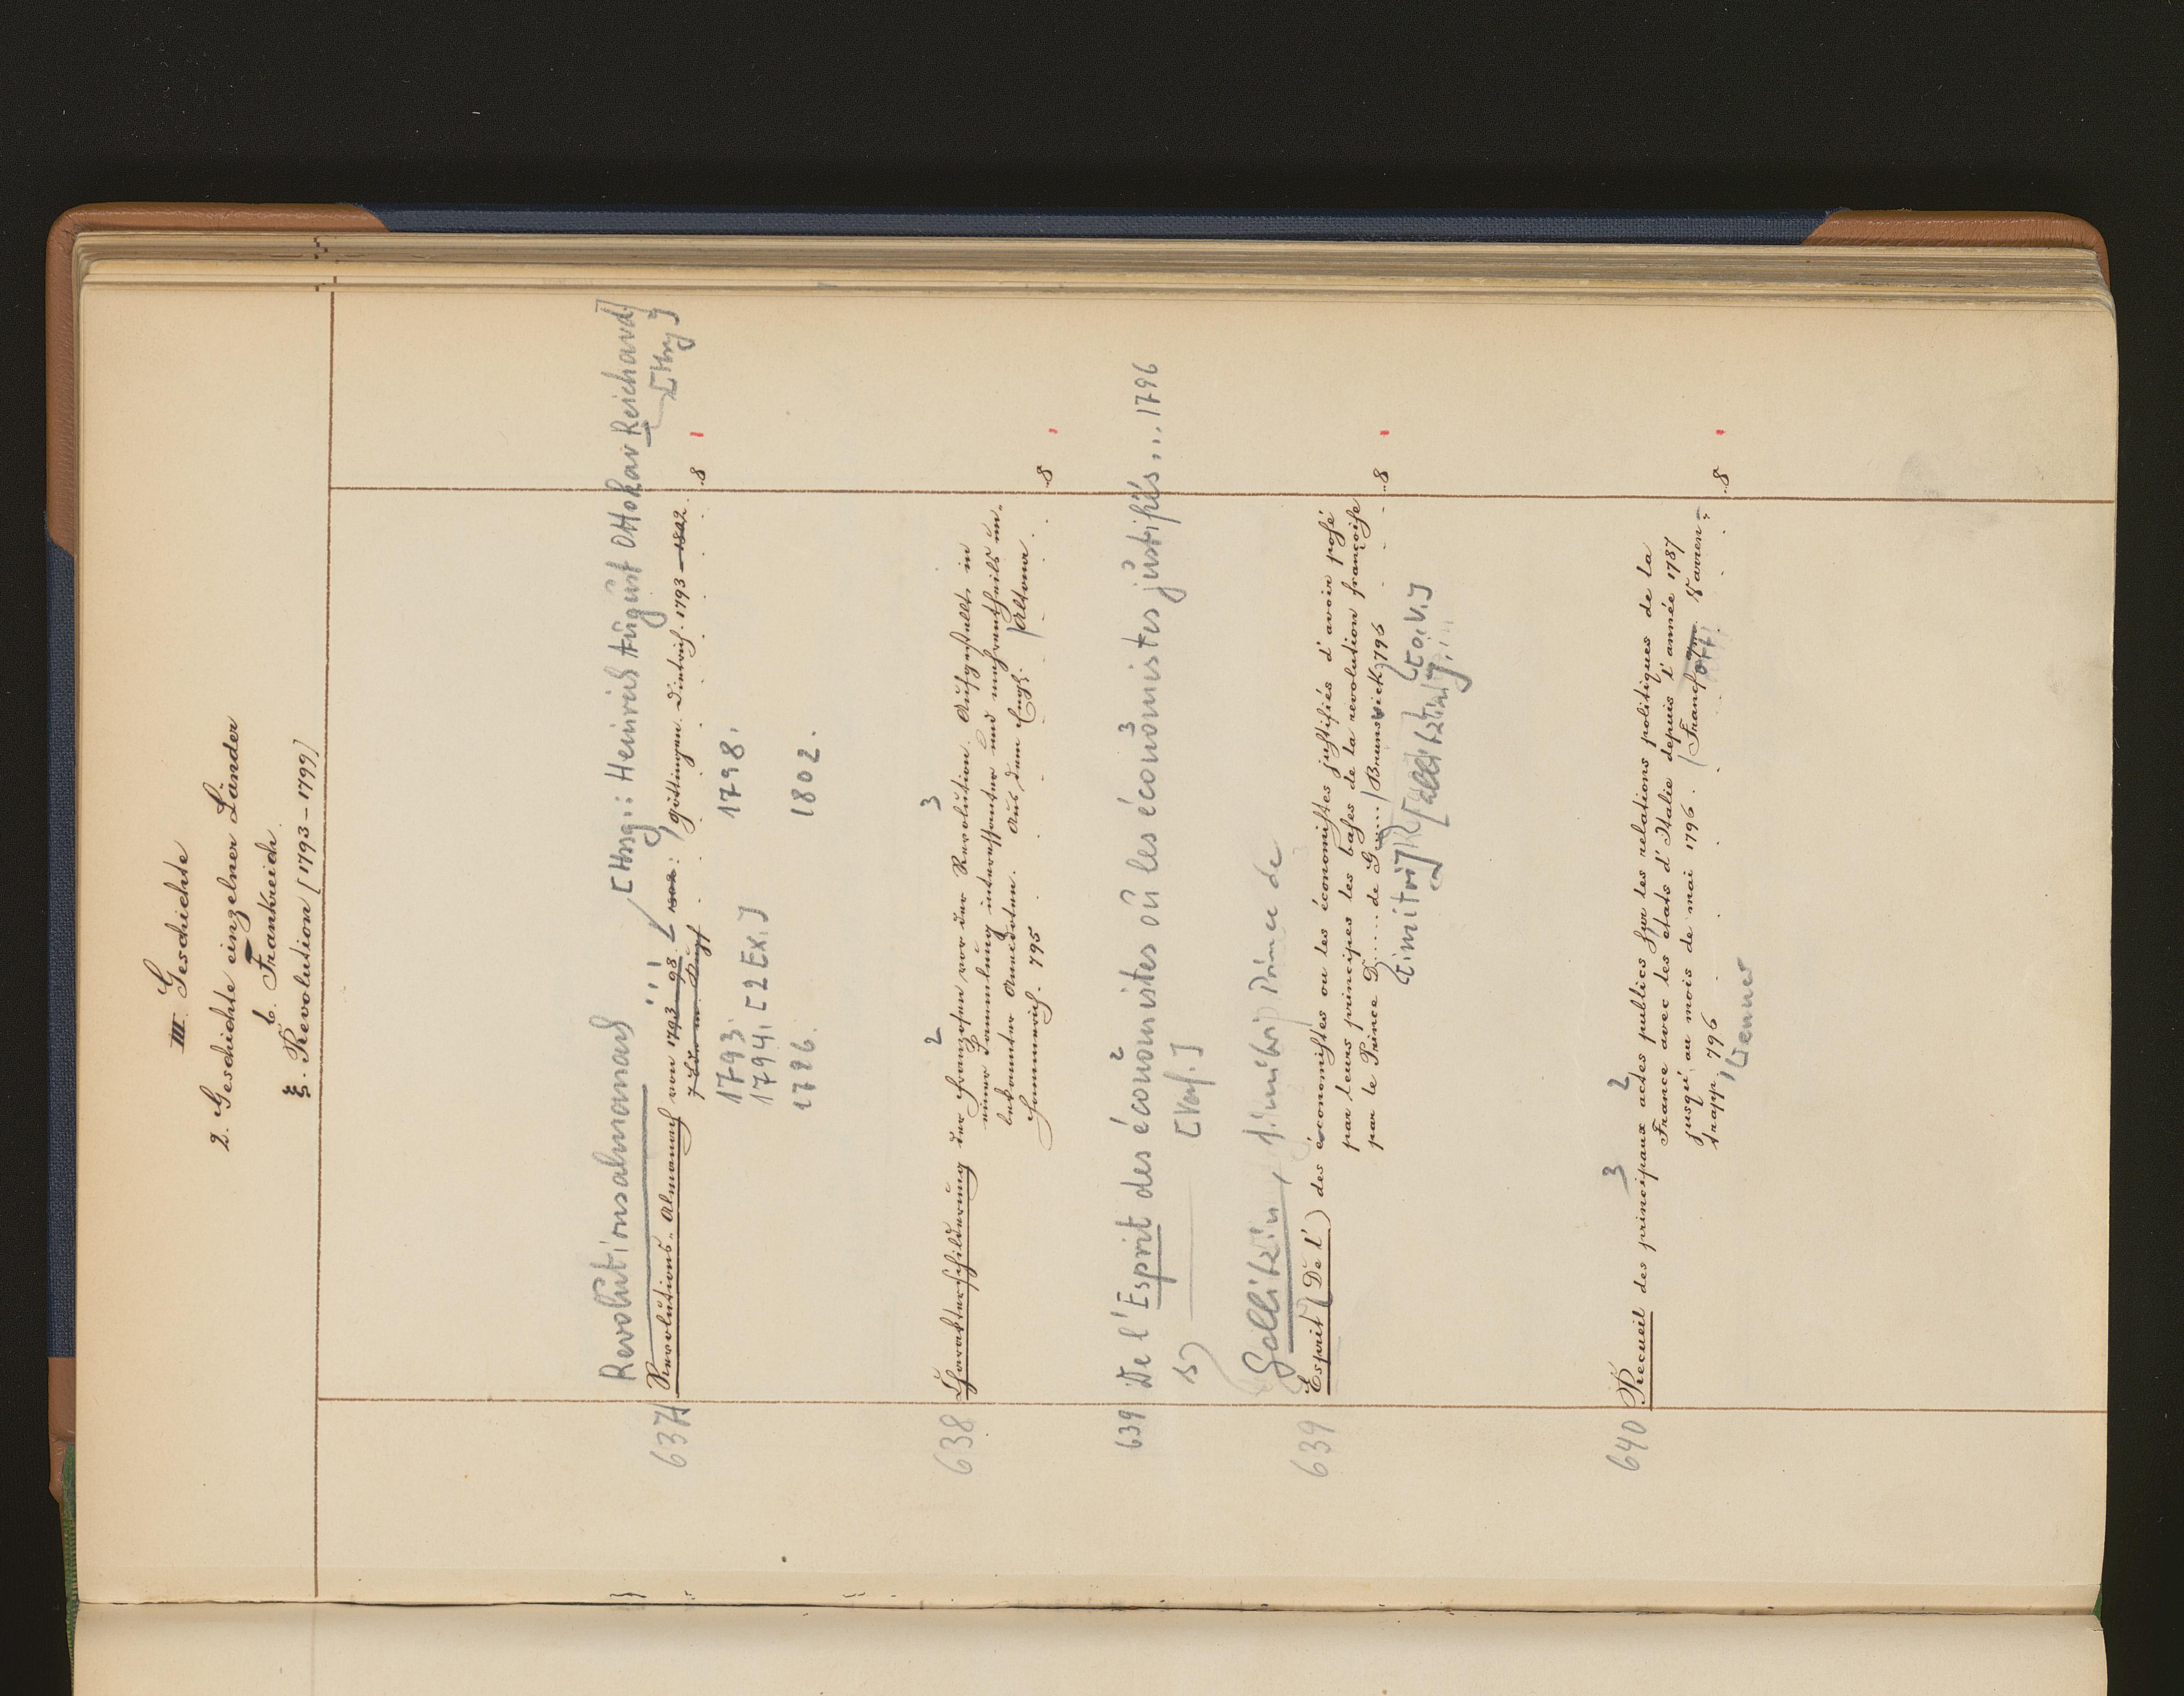 III. Geschichte
2. Geschichte einzelner Länder
b. Frankreich.
ξ. Revolution [1793–1799]
Revolutionsalmanach [Hrsg.: Heinrich August Ottokar Reichard]
[Hrsg]
637 Revolutions-Almanach von 1793–98. 1802. Göttingen. Dietrich. 1793–1802. 8
1793. 1798.
1794. [2 Ex.]
1796. 1802.
2 3
638 Charakterschilderung der Franzosen vor der Revolution. Aufgestellt in
einer Sammlung interessanter und mehrentheils un-
bekannter Anecdoten. Aus dem Engl. Altona.
Hammerich. 795 8
2 3
639 De l'Esprit des économistes où les économistes justifiés... 1796
s) [Verf.]
Gallitzin, Dimitrij Prince de
639 Esprit (De l') des économistes ou les économistes justifiés d'avoir posé
par leurs principes les bases de la revolution françoise
par le Prince D..... de G..... Brunsvick 796 8
[o.V.]
3 2
640 Recueil des principaux actes publics sur les relations politiques de la
France avec les états d'Italie depuis l'année 1787
jusqu'au mois de mai 1796. Francf. Varren-
trapp, 796 8
Wenner